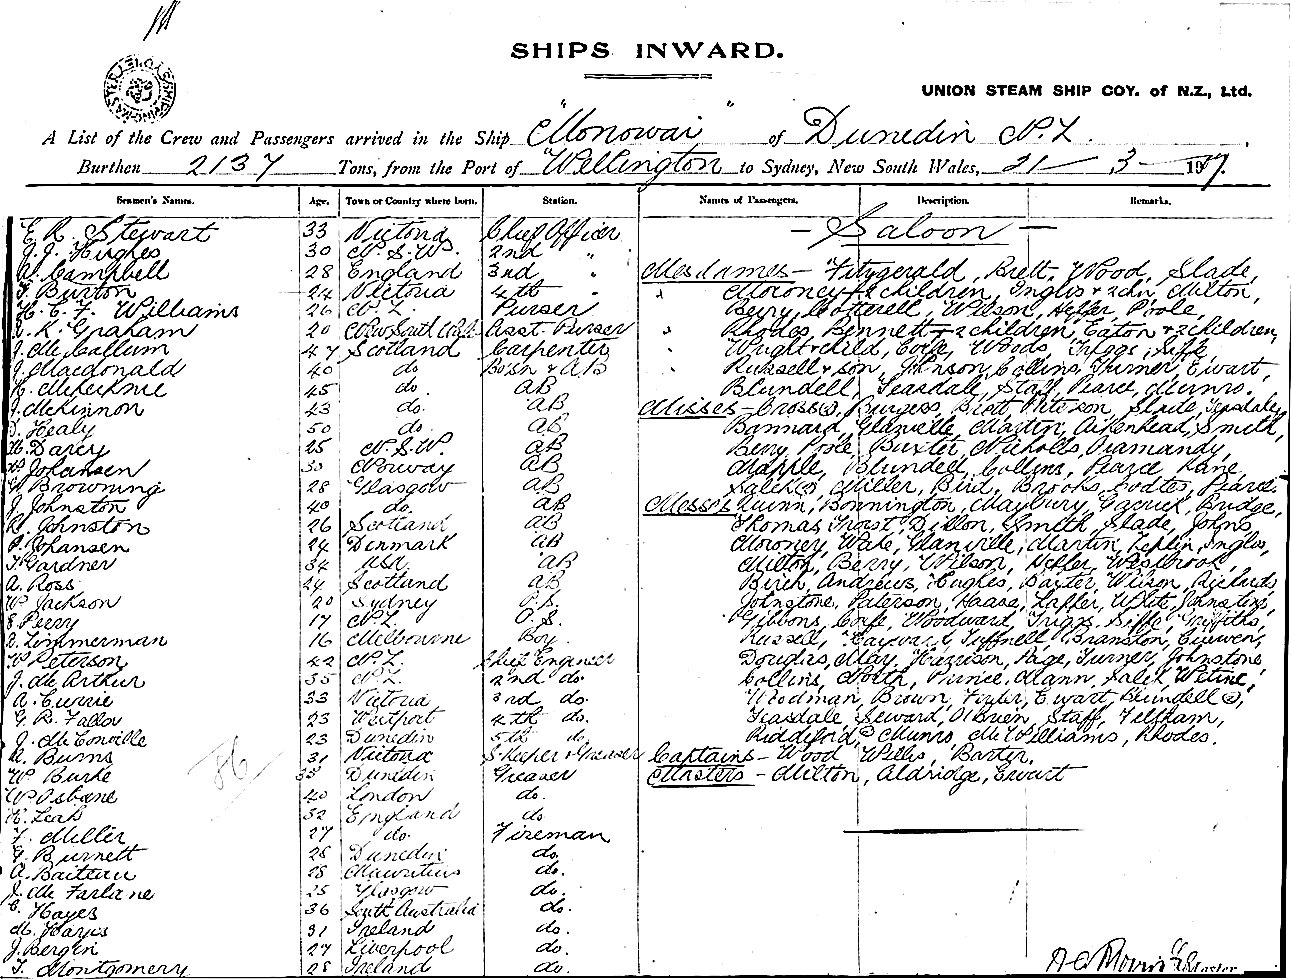 SHIPS INWARD.
UNION STEAM SHIP COY. of N.Z., Ltd.
A List of the Crew and Passengers arrived in the Ship "Monowai" of Dunedin N.Z.
Burthen 2137 Tons, from the Port of Wellington to Sydney, New South Wales, 21 3 1907.
Seamen's Names. Age. Town or Country where born. Station. Names of Passengers. Description. Remarks.
E. R. Stewart 33 Victoria Chief Officer — Saloon —
J. J. Hughes 30 N.S.W. 2nd "
Campbell 28 England 3rd " Mesdames — Fitzgerald, Brett, Wood, Slade,
Burton 24 Victoria 4th " Moroney + 2 children, Inglis + 2 chn, Milton,
H. E. F. Williams 26 N.Z. Purser Berry, Cotterell, Wilson, Heller, Poole,
R. Graham 20 New South Wales Asst. Purser Rhodes, Bennett + 2 children, Eaton + 2 children,
J. McCallum 47 Scotland Carpenter Wright + child, Corfe, Woods, Triggs, Siffe,
J. Macdonald 40 do Bosn & AB Russell + son, Johnson, Collins, Turner, Ewart,
McKechnie 45 do. AB Blundell, Teasdale, Staff, Pearce, Munro.
J. McKinnon 43 do. AB Misses — Cross, Burgess, Brett, Peterson, Slade, Teasdale,
Healy 50 do. AB Bannard, Glanville, Martin, Aikenhead, Smith,
Darcy 25 N.S.W. AB Berry, Poole, Buxter, Nicholls, Diamandy,
Johansen 30 Norway AB Blundell, Collins, Pearce, Kane,
Browning 28 Glasgow AB Salek, Miller, Bird, Brooks, Pearce.
J. Johnston 40 do. AB Messrs Quinn, Bonnington, Maybury, Garrick, Bridge,
R. Johnston 26 Scotland AB Thomas, Frost, Dillon, Smith, Slade, Johns,
Johansen 24 Denmark AB Moroney, Wake, Glanville, Martin, Inglis,
Gardner 34 AB Milton, Berry, Wilson, Heller, Westbrook,
A. Ross 24 Scotland AB Birch, Andrews, Hughes, Baxter, Wilson, Richards,
W. Jackson 20 Sydney O.S. Johnstone, Paterson, Haase, Laffer, White, Johnston,
Perry 17 N.Z. O.S. Gibbons, Corfe, Woodward, Triggs, Siffe, Griffiths,
Zimmerman 16 Melbourne Boy Russell, Hayward, Tuffnell, Branston, Curwen,
Peterson 42 N.Z. Chief Engineer Douglas, May, Harrison, Page, Turner, Johnstone,
J. McArthur 35 N.Z. 2nd do. Collins, North, Prince, Mann, Salek,
A. Currie 33 Victoria 3rd do. Woodman, Brown, Foster, Ewart, Blundell,
G. R. Fallon 23 Westport 4th do. Teasdale, Seward, O'Brien, Staff, Feltham,
J. McConville 23 Dunedin 5th do Riddiford, Munro, McWilliams, Rhodes.
A. Burns 31 Victoria S. Keeper & Greaser Captains — Wood, Willis, Baxter,
W. Burke 35 Dunedin Greaser Masters — Milton, Aldridge, Ewart
W. Osbane 40 London do.
H. Leah 32 England do
86
F. Miller 27 do. Fireman
Burnett 28 Dunedin do.
A. Baiteau 28 Mauritius do.
J. McFarlane 25 Glasgow do.
Hayes 36 South Australia do.
M. Hayes 31 Ireland do.
J. Bergin 27 Liverpool do.
T. Montgomery 28 Ireland do.
Master